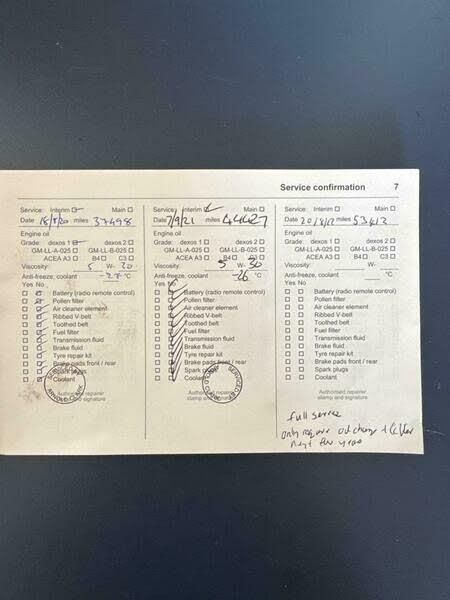 Service confirmation 7
Service: Interim Main
Date 18/8/20 miles 37498
Engine oil
Grade: dexos 1 dexos 2
GM-LL-A-025 GM-LL-B-025
ACEA A3 B4 C3
Viscosity: 5 W- 30
Anti-freeze, coolant -27 °C
Yes No
Battery (radio remote control)
Pollen filter
Air cleaner element
Ribbed V-belt
Toothed belt
Fuel filter
Transmission fluid
Brake fluid
Tyre repair kit
Brake pads front / rear
Spark plugs
Coolant
Authorised repairer
stamp and signature
Service: Interim Main
Date 7/9/21 miles 44427
Engine oil
Grade: dexos 1 dexos 2
GM-LL-A-025 GM-LL-B-025
ACEA A3 B4 C3
Viscosity: 5 W- 30
Anti-freeze, coolant -26 °C
Yes No
Battery (radio remote control)
Pollen filter
Air cleaner element
Ribbed V-belt
Toothed belt
Fuel filter
Transmission fluid
Brake fluid
Tyre repair kit
Brake pads front / rear
Spark plugs
Coolant
Authorised repairer
stamp and signature
Service: Interim Main
Date miles 53413
Engine oil
Grade: dexos 1 dexos 2
GM-LL-A-025 GM-LL-B-025
ACEA A3 B4 C3
Viscosity: W-
Anti-freeze, coolant °C
Yes No
Battery (radio remote control)
Pollen filter
Air cleaner element
Ribbed V-belt
Toothed belt
Fuel filter
Transmission fluid
Brake fluid
Tyre repair kit
Brake pads front / rear
Spark plugs
Coolant
Authorised repairer
stamp and signature
full service
only require oil change &
next year